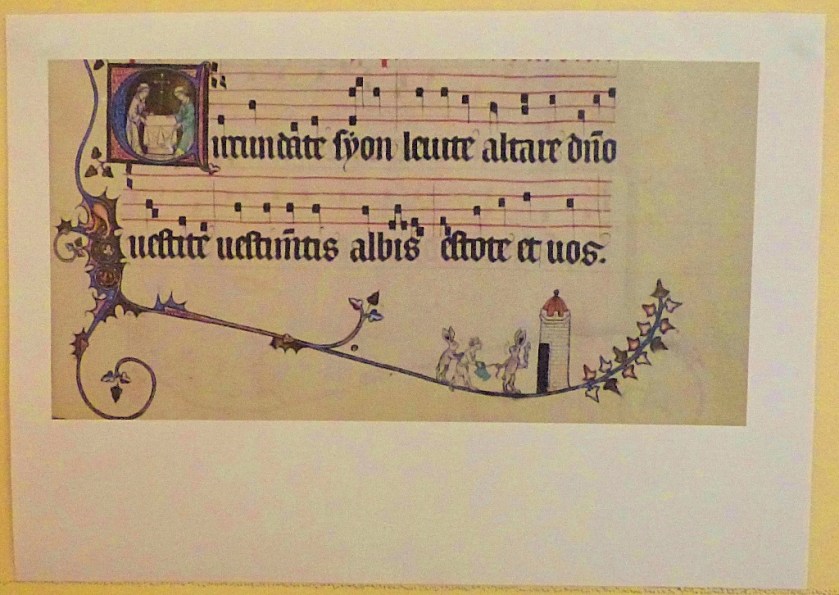 Circundate syon leuite altare dn̄o
uestite uestim̄tis albis estote et uos.